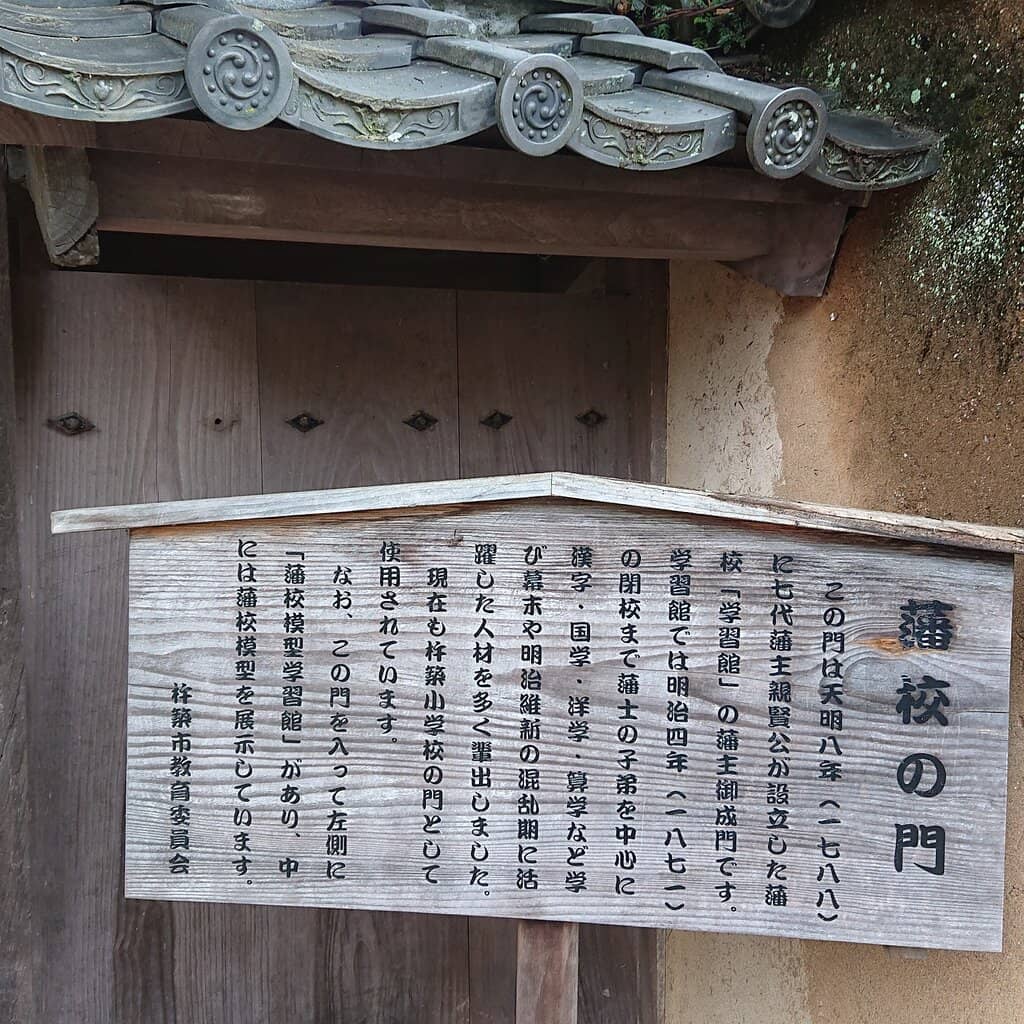 藩校の門
この門は天明八年（一七八八）
に七代藩主親賢公が設立した藩
校「学習館」の藩主御成門です。
学習館では明治四年（一八七一）
の閉校まで藩士の子弟を中心に
漢字・国学・洋学・算学など学
び幕末や明治維新の混乱期に活
躍した人材を多く輩出しました。
現在も杵築小学校の門として
使用されています。
なお、この門を入って左側に
「藩校模型学習館」があり、中
には藩校模型を展示しています。
杵築市教育委員会